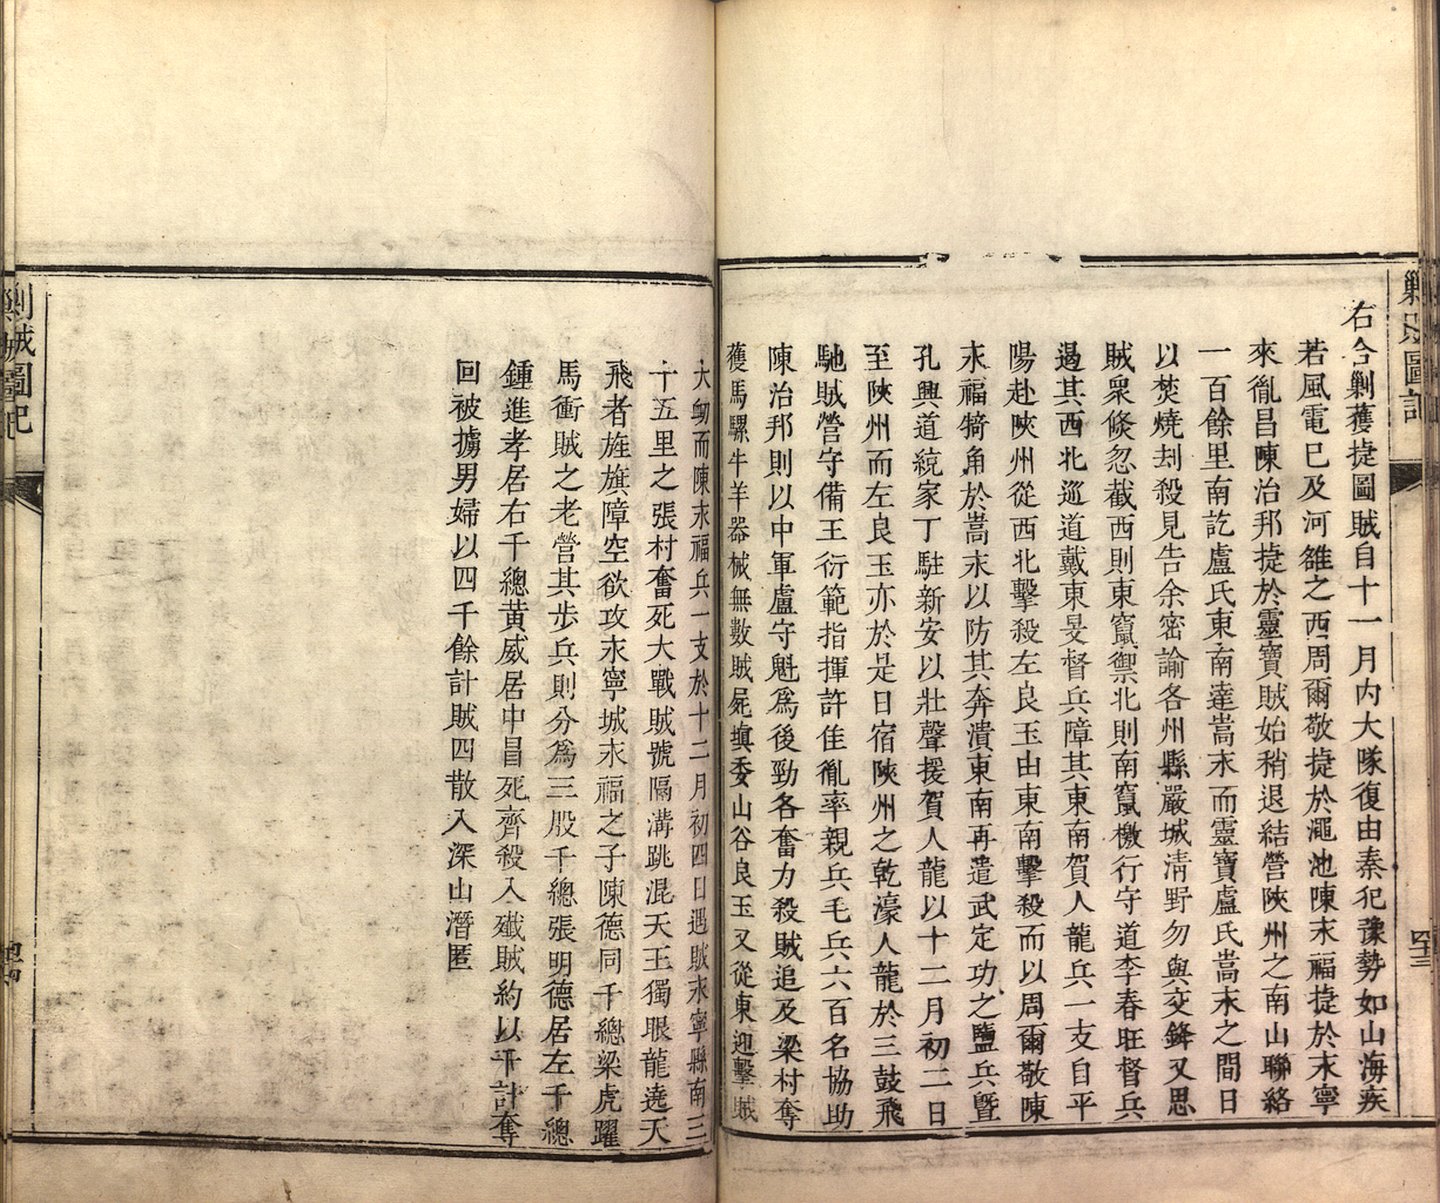 剿賊圖記
四十三
右合剿獲捷圖賊自十一月內大隊復由秦犯豫勢如山海疾
若風電巳及河雒之西周爾敬捷於澠池陳末福捷於末寧
來胤昌陳治邦捷於靈寶賊始稍退結營陝州之南山聯絡
一百餘里南訖盧氏東南達嵩末而靈寶盧氏嵩末之間日
以焚燒刦殺見告余密諭各州縣嚴城清野勿與交鋒又思
賊衆倐忽截西則東竄禦北則南竄檄行守道李春旺督兵
遏其西北巡道戴東旻督兵障其東南賀人龍兵一支自平
陽赴陝州從西北擊殺左良玉由東南擊殺而以周爾敬陳
末福犄角於嵩末以防其奔潰東南再遣武定功之鹽兵曁
孔興道統家丁駐新安以壯聲援賀人龍以十二月初二日
至陝州而左良玉亦於是日宿陝州之乾濠人龍於三鼓飛
馳賊營守備王衍範指揮許佳胤率親兵毛兵六百名協助
陳治邦則以中軍盧守魁爲後勁各奮力殺賊追及梁村奪
獲馬騾牛羊器械無數賊屍塡委山谷良玉又從東迎擊賊
大衂而陳末福兵一支於十二月初四日遇賊末寧縣南三
十五里之張村奮死大戰賊號隔溝跳混天王獨眼龍遶天
飛者旌旗障空欲攻末寧城末福之子陳德同千總梁虎躍
馬衝賊之老營其步兵則分爲三股千總張明德居左千總
鍾進孝居右千總黃威居中冒死齊殺入殲賊約以千計奪
回被擄男婦以四千餘計賊四散入深山潛匿
剿賊圖記
四十四